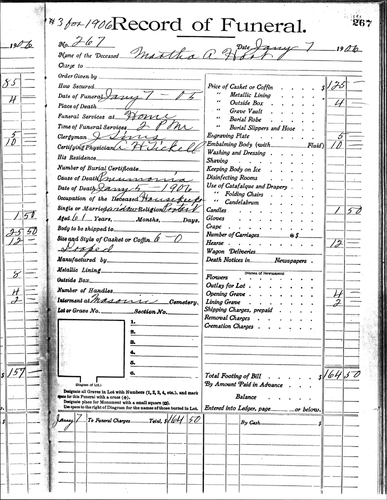 #3 for 1906
Record of Funeral.
267
No. 267
Date Jany 7 1906
Name of the Deceased Martha A. Host
Charge to
Order Given by
How Secured
Date of Funeral Jany 7 - 05
Place of Death
Funeral Services at Home
Time of Funeral Services 2 P M
Clergyman
Certifying Physician
His Residence
Number of Burial Certificate
Cause of Death Pneumonia
Date of Death Jany 5 1906
Occupation of the Deceased Housekeeper
Single or Married Widow Religion
Aged 61 Years, Months, Days.
Body to be shipped to
Size and Style of Casket or Coffin 6-0
Manufactured by
Metallic Lining
Outside Box
Number of Handles
Interment at Masonic Cemetery.
Lot or Grave No. Section No.
1.
2.
3.
4.
5.
6.
(Diagram of Lot.)
Designate all Graves in Lot with Numbers (1, 2, 3, 4, etc.), and mark
space for this Funeral with a cross (+).
Designate place for Monument with a small square (□).
Use the space to the right of Diagram for the names of those buried in Lot.
Price of Casket or Coffin $ 125 -
" Metallic Lining
" Outside Box 4 -
" Grave Vault
" Burial Robe
" Burial Slippers and Hose
Engraving Plate 5 -
Embalming Body (with Fluid) 10 -
Washing and Dressing
Shaving
Keeping Body on Ice
Disinfecting Rooms
Use of Catafalque and Drapery
" Folding Chairs
" Candelabrum
Candles 1 50
Gloves
Crape
Number of Carriages @ $
Hearse 12 -
Wagon Deliveries
Death Notices in Newspapers
(Names of Newspapers)
Flowers
Outlay for Lot
Opening Grave 4
Lining Grave 2
Shipping Charges, prepaid
Removal Charges
Cremation Charges
Total Footing of Bill $ 164 50
By Amount Paid in Advance
Balance
Entered into Ledger, page or below.
Jany 7 To Funeral Charges Total, $ 164 50
By Cash $
1906
85
4
5
10
1 50
25 50
12
8
4
2
157